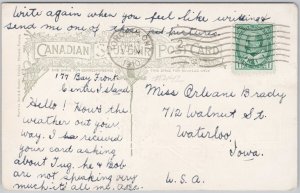 Write again when you feel like writing
send me one of those
CANADIAN
POST CARD
177 Bay Front
Centre Island
Hello! How's the
weather out your
way. I received
your card asking
about Tug, he & Bob
are not speaking very
much it's all
Miss Arleane Brady
712 Walnut St.
Waterloo
Iowa.
U.S.A.